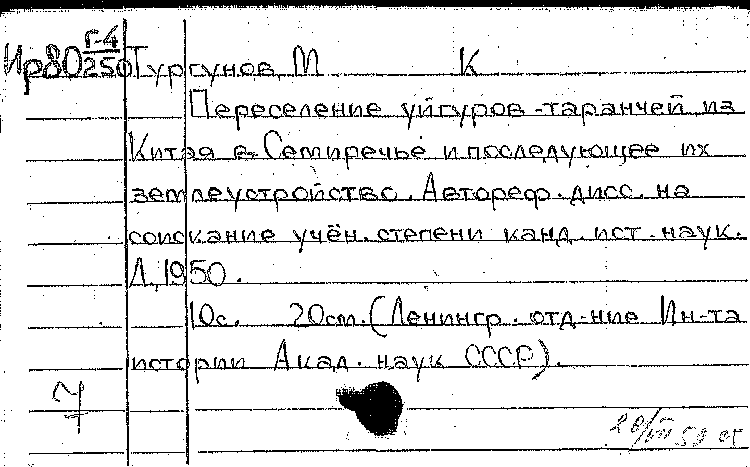 Ир80 Г-4/250 Тургунов, М К
Переселение уйгуров-таранчей из
Китая в Семиречье и последующее их
землеустройство. Автореф. дисс. на
соискание учён. степени канд. ист. наук.
Л., 1950.
10с. 20см. (Ленингр. отд-ние Ин-та
истории Акад. наук СССР).